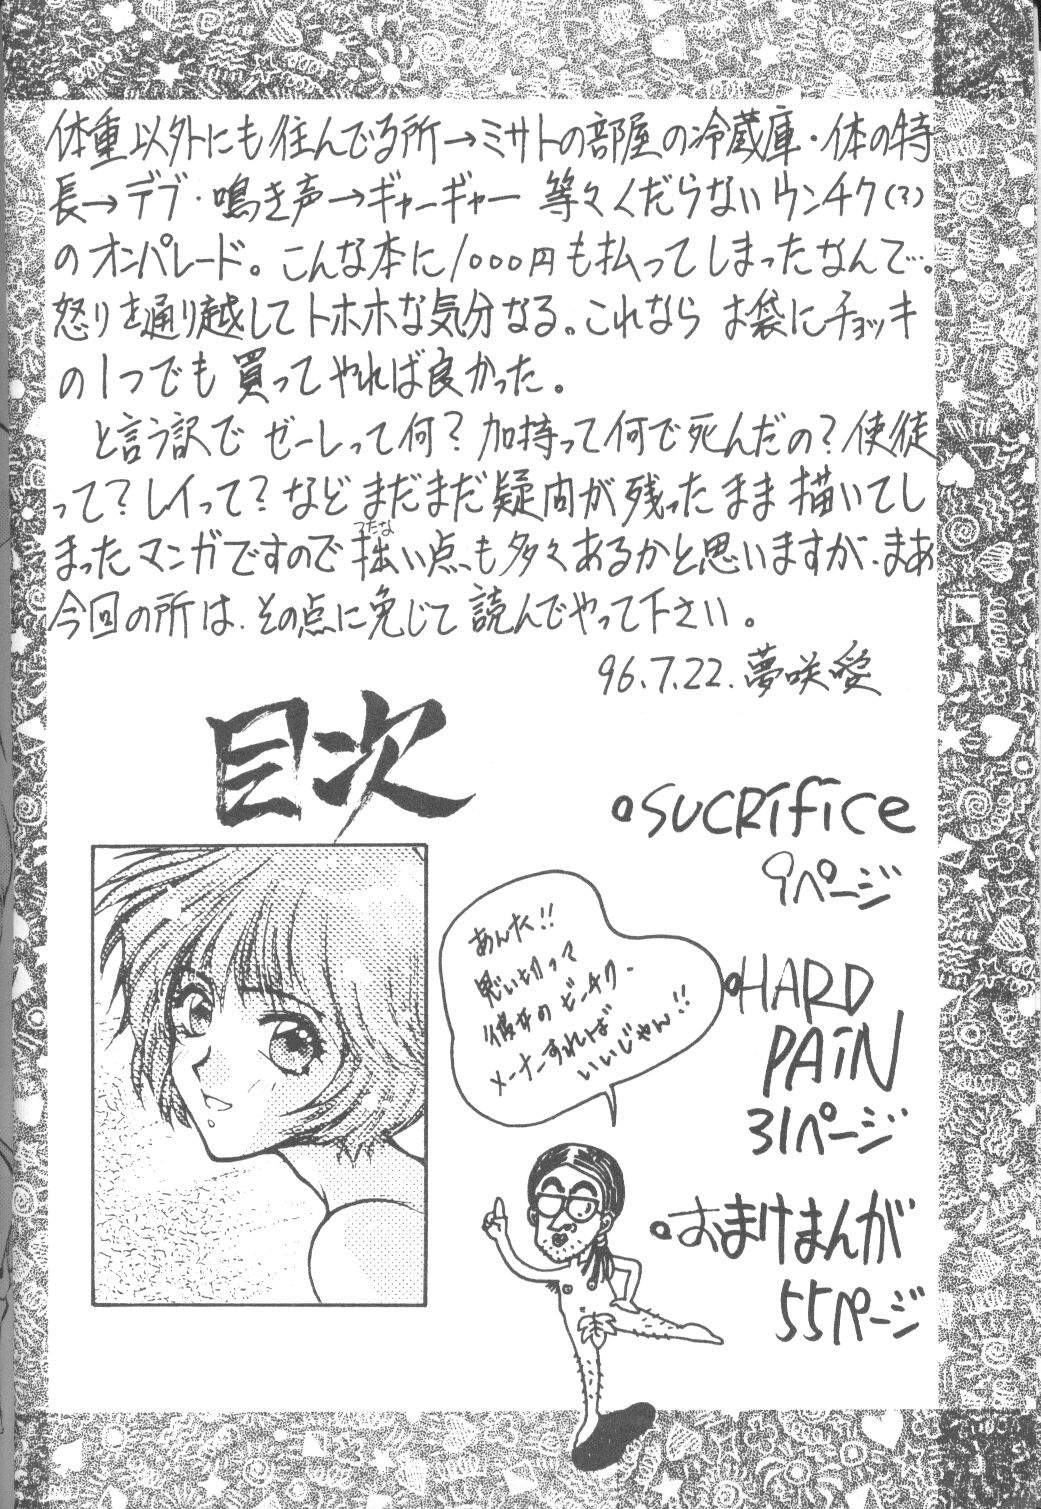 体重以外にも住んでる所→ミサトの部屋の冷蔵庫・体の特
長→デブ・鳴き声→ギャーギャー 等々くだらないウンチク(?)
のオンパレード。こんな本に1000円も払ってしまったなんて…。
怒りを通り越してトホホな気分なる。これなら お袋にチョッキ
の1つでも買ってやれば良かった。
と言う訳で ゼーレって何？加持って何で死んだの？使徒
って？レイって？などまだまだ疑問が残ったまま描いてし
まったマンガですので拙い点も多々あるかと思いますが、まあ
つたな
今回の所は、その点に免じて読んでやって下さい。
96.7.22.夢咲愛
目次
SUCRifice
9ページ
HARD
PAiN
31ページ
おまけまんが
55ページ
あんた!!
思い切って
彼女のピーチク
いいじゃん!!